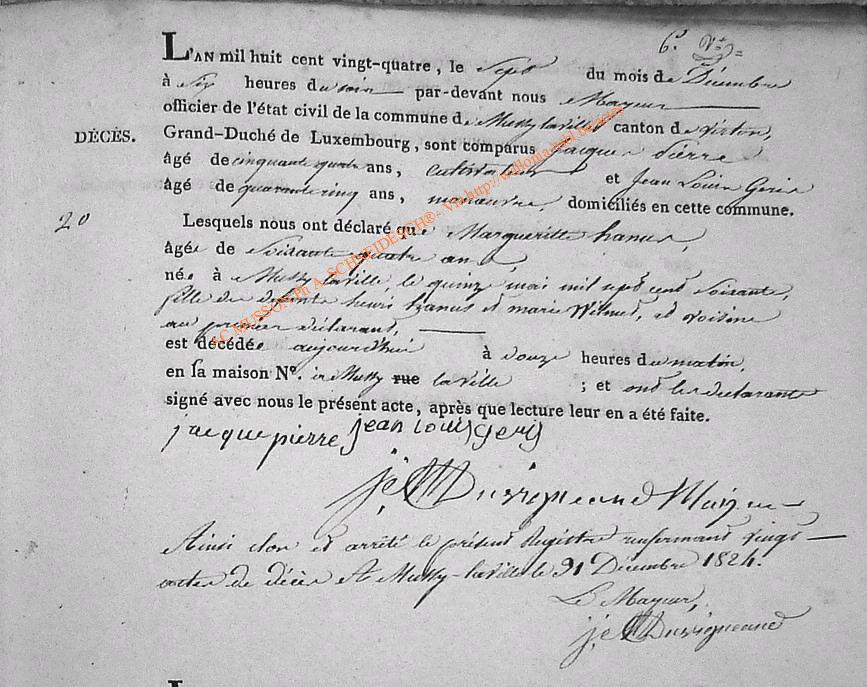 6e
L'AN mil huit cent vingt-quatre, le Sept du mois de Décembre
à Six heures du soir par-devant nous Mayeur
officier de l'état civil de la commune de Mussy la ville canton de virton,
DÉCÈS. Grand-Duché de Luxembourg, sont comparus jacque Pierre
âgé de cinquante quatre ans, cultivateur et Jean Louis Geris
âgé de quarante cinq ans, manœuvre, domiciliés en cette commune.
20 Lesquels nous ont déclaré que Margueritte hanus,
âgée de Soixante quatre ans,
née à Mussy laville, le quinze mai mil sept cent Soixante,
fille de défunts henri hanus et marie et voisine
au premier déclarant,
est décédée aujourdhui à douze heures du matin,
en sa maison No. à Mussy rue la ville ; et ont les declarants
signé avec nous le présent acte, après que lecture leur en a été faite.
jacque pierre jean louis geris
Ainsi clos et arrêté le présent Registre renfermant vingt
actes de décès A Mussy-laville le 31 Décembre 1824.
Le Mayeur,
AC MUSSON Ph A. SCHNEIDESCH®- Via http://wallonia.asbl.